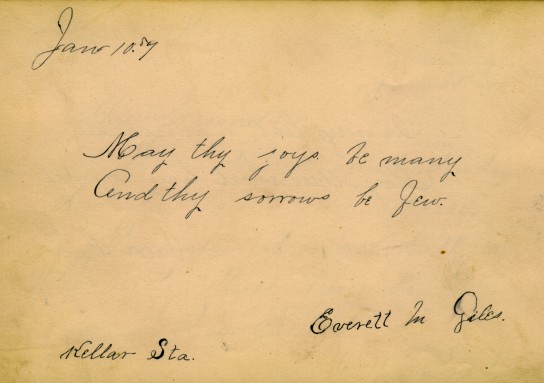 Jan 10. 89
May thy joys be many
And thy sorrows be few.
Everett M Giles.
Kellar Sta.